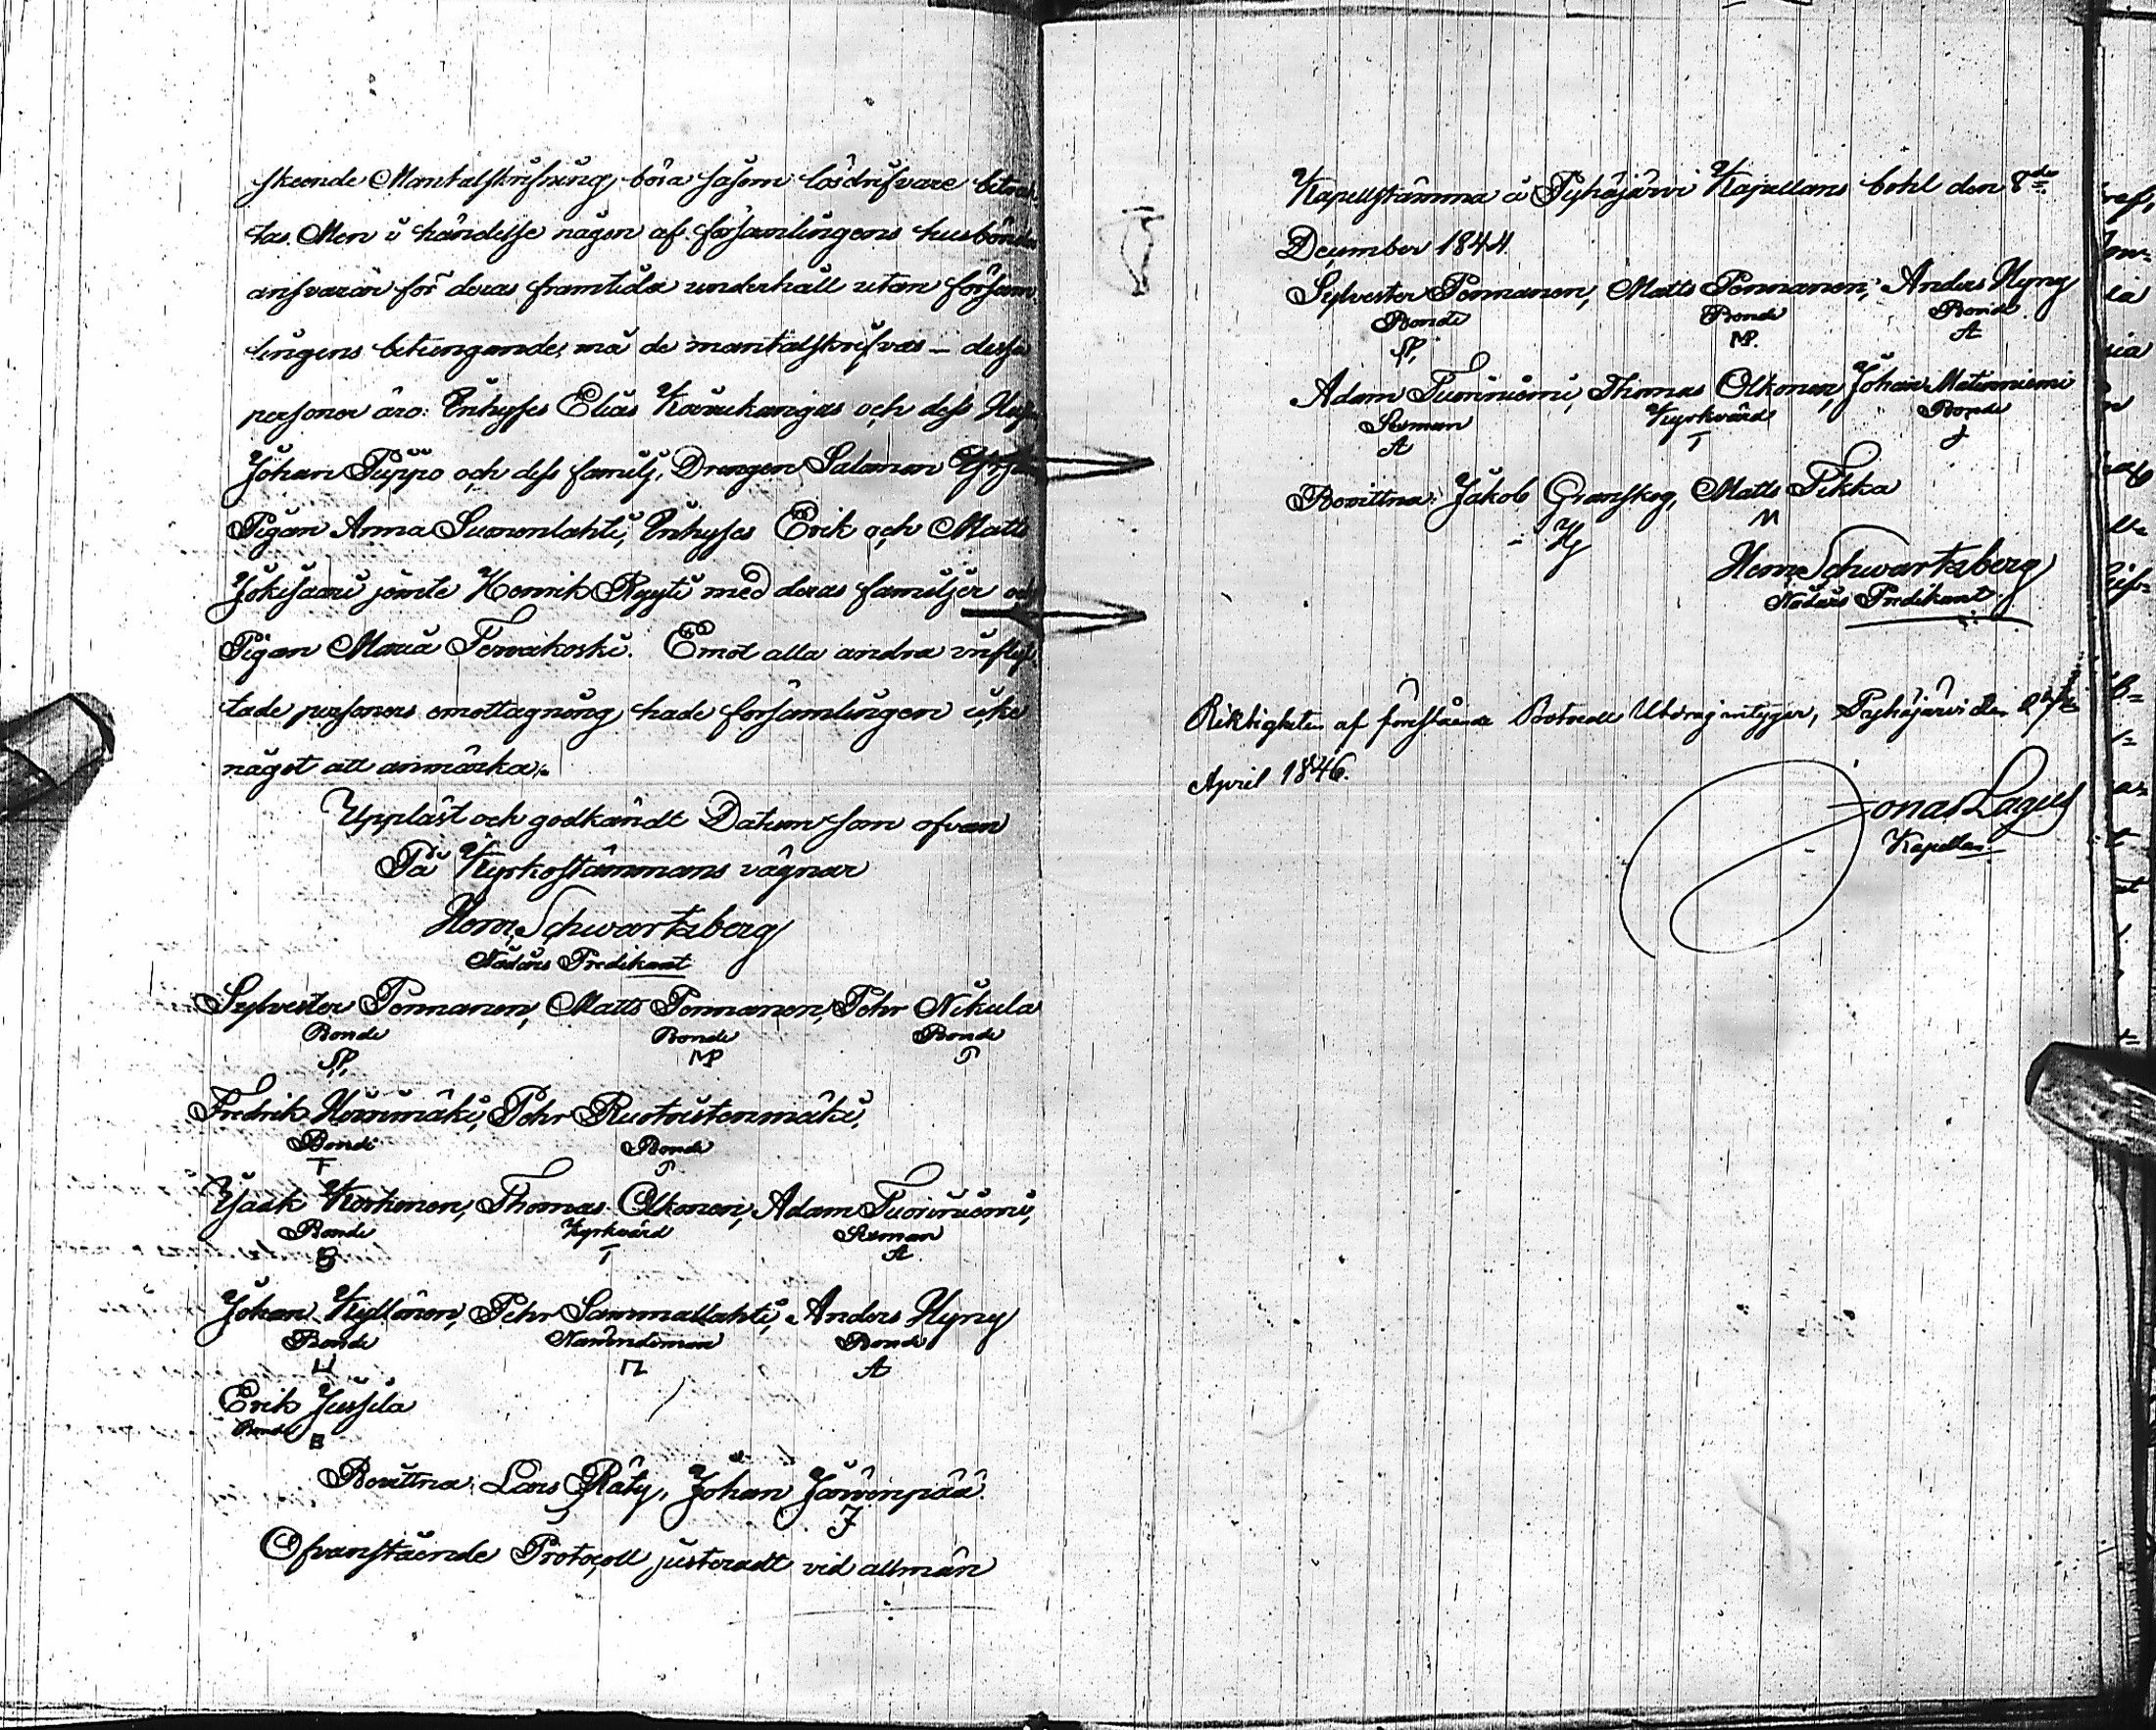 skeende Mantalskrifning, böra såsom lösdrifvare betrak-
tas. Men i händelse någon af församlingens husbönder
ansvarar för deras framtida underhåll utan försam-
lingens betungande, må de mantalskrifvas – dessa
personer äro: Inhyses Elias Korvukangas och dess
Johan Puppo och dess familj, Drengen Salomon
Pigan Anna Suonenlahti, Inhyses Erik och Matts
Jokisaari jemte Henrik Ryyti med deras familjer och
Pigan Maria Tervakoski. Emot alla andra inflyt-
tade personers emottagning hade församlingen icke
något att anmärka.
Uppläst och godkändt Datum som ofvan
På Kyrkostämmans vägnar
Herm. Schwartzberg
Nådårs Predikant
Sylvester Pennanen, Matts Pennanen, Pehr Nikula
Bonde Bonde Bonde
SP. MP P
Fredrik Honnimäki, Pehr Ruotoistenmäki,
Bonde Bonde
F P
Isaak Korkonen, Thomas Olkonen, Adam Tuoriniemi,
Bonde Kyrkvärd Sexman
T A
Johan Kyllönen, Pehr Sammallahti, Anders Hyny
Bonde Nämndeman Bonde
A
Erik Jussila
Bonde
Bevittna: Lars Räty, Johan Järvenpää.
J
Ofvanstående Protocoll justeradt vid allmän
Kapellstämma å Pyhäjärvi Kapellans bohl den 8de
December 1844.
Sylvester Pennanen, Matts Pennanen, Anders Hyny
Bonde Bonde Bonde
SP. MP. A
Adam Tuoriniemi, Thomas Olkonen, Johan Matinniemi
Sexman Kyrkvärd Bonde
A T J
Bevittna: Jakob Granskog, Matts Pikka
M
Herm. Schwartzberg
Nådårs Predikant.
Riktigheten af förestående Protocolls Utdrag intygar, Pyhäjärvi den
April 1846.
Jonas Lagus
Kapellan.